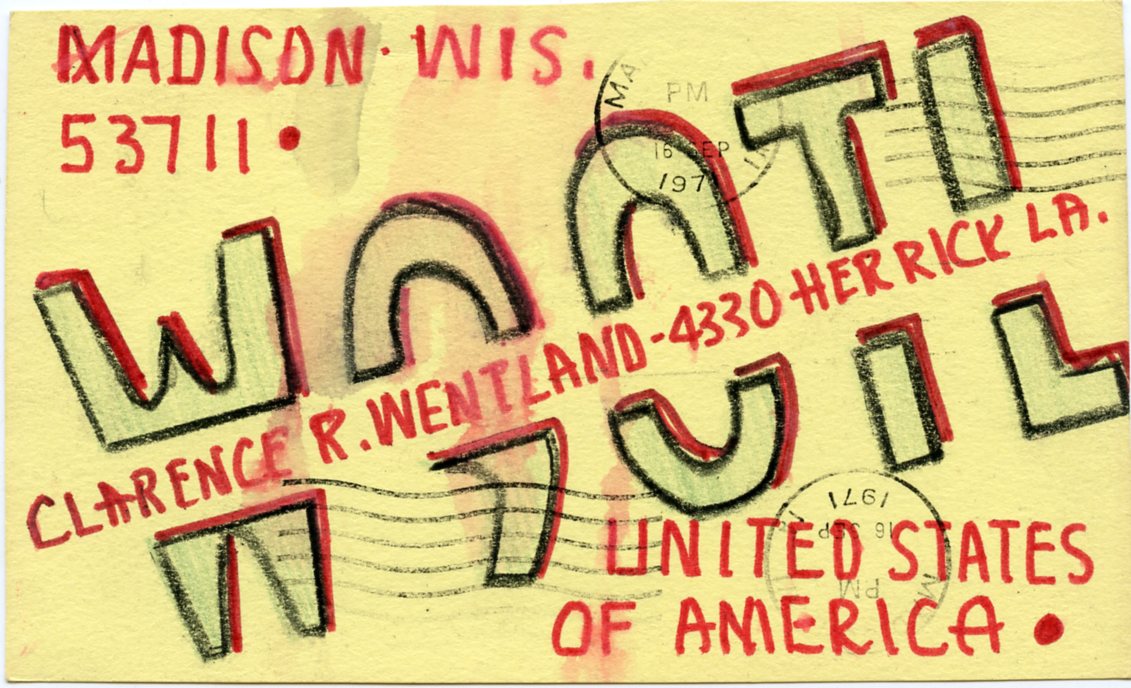 MADISON · WIS.
53711 •
PM
16 SEP
197
CLARENCE R. WENTLAND-4330 HERRICK LA.
PM
16 SEP
1971
UNITED STATES
OF AMERICA •